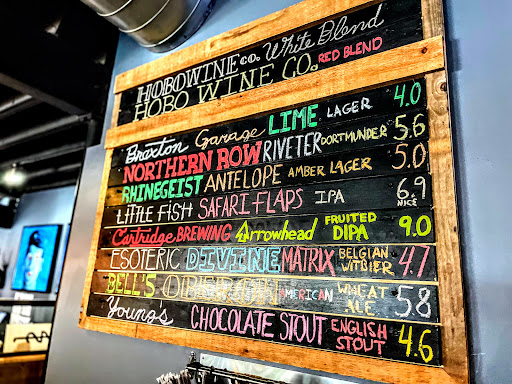 HOBO WINE CO. White Blend
HOBO WINE CO. RED BLEND
Braxton Garage LIME LAGER 4.0
NORTHERN ROW RIVETER DORTMUNDER 5.6
RHINEGEIST ANTELOPE AMBER LAGER 5.0
LITTLE FISH SAFARI FLAPS IPA 6.9
NICE
Cartridge BREWING Arrowhead FRUITED DIPA 9.0
ESOTERIC DIVINE MATRIX BELGIAN WITBIER 4.7
BELL'S OBERON AMERICAN WHEAT ALE 5.8
Young's CHOCOLATE STOUT ENGLISH STOUT 4.6